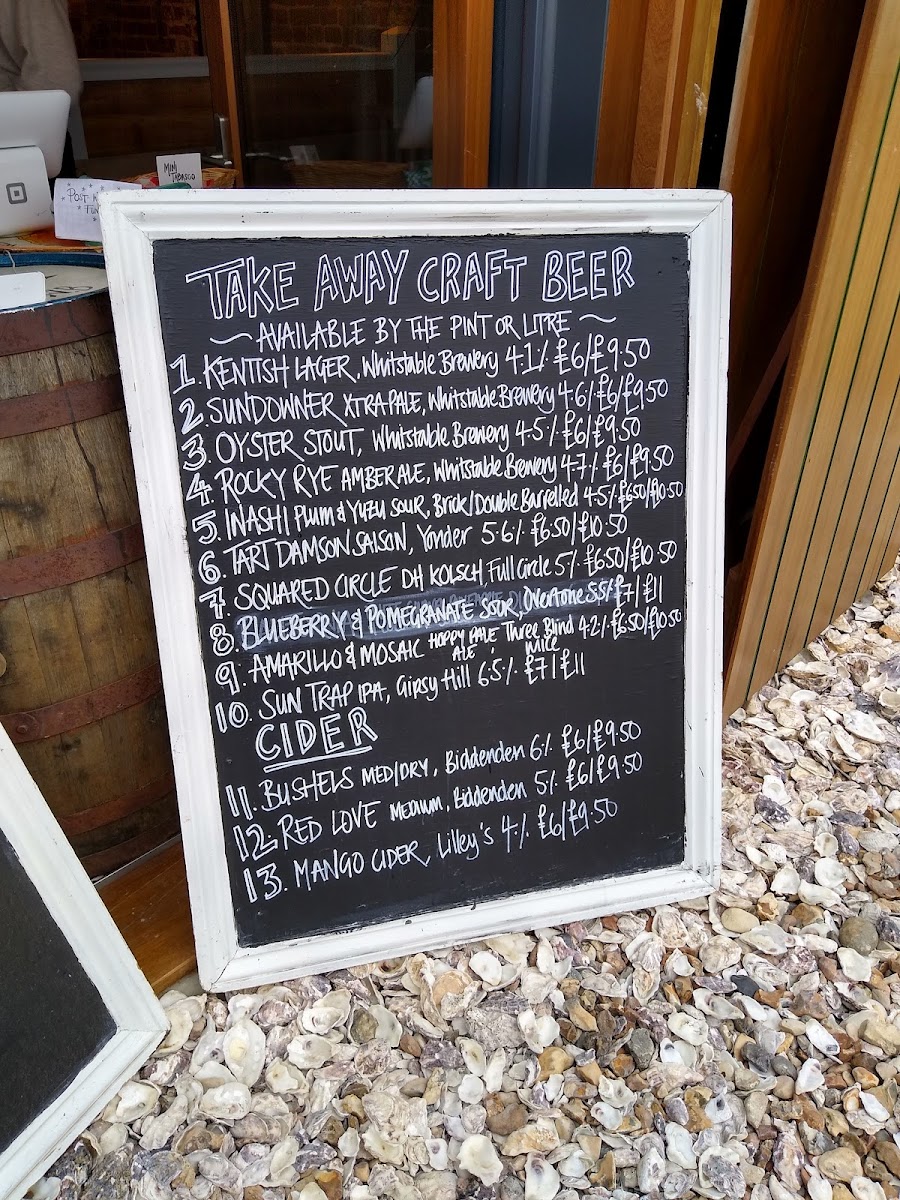 MINI
TABASCO
POST
TAKE AWAY CRAFT BEER
~ AVAILABLE BY THE PINT OR LITRE ~
1. KENTISH LAGER, Whitstable Brewery 4.1% £6/£9.50
2. SUNDOWNER XTRA PALE, Whitstable Brewery 4.6% £6/£9.50
3. OYSTER STOUT, Whitstable Brewery 4.5% £6/£9.50
4. ROCKY RYE AMBER ALE, Whitstable Brewery 4.7% £6/£9.50
5. INASHI Plum & YUZU SOUR, Brick/Double Barrelled 4.5% £6.50/£10.50
6. TART DAMSON SAISON, Yonder 5.6% £6.50/£10.50
7. SQUARED CIRCLE DH KOLSCH, Full Circle 5% £6.50/£10.50
8. BLUEBERRY & POMEGRANATE SOUR, Overtone 5.5% £7/£11
9. AMARILLO & MOSAIC HOPPY PALE ALE, Three Blind Mice 4.2% £6.50/£10.50
10. SUN TRAP IPA, Gipsy Hill 6.5% £7/£11
CIDER
11. BUSHELS MED/DRY, Biddenden 6% £6/£9.50
12. RED LOVE MEDIUM, Biddenden 5% £6/£9.50
13. MANGO CIDER, Lilley's 4% £6/£9.50